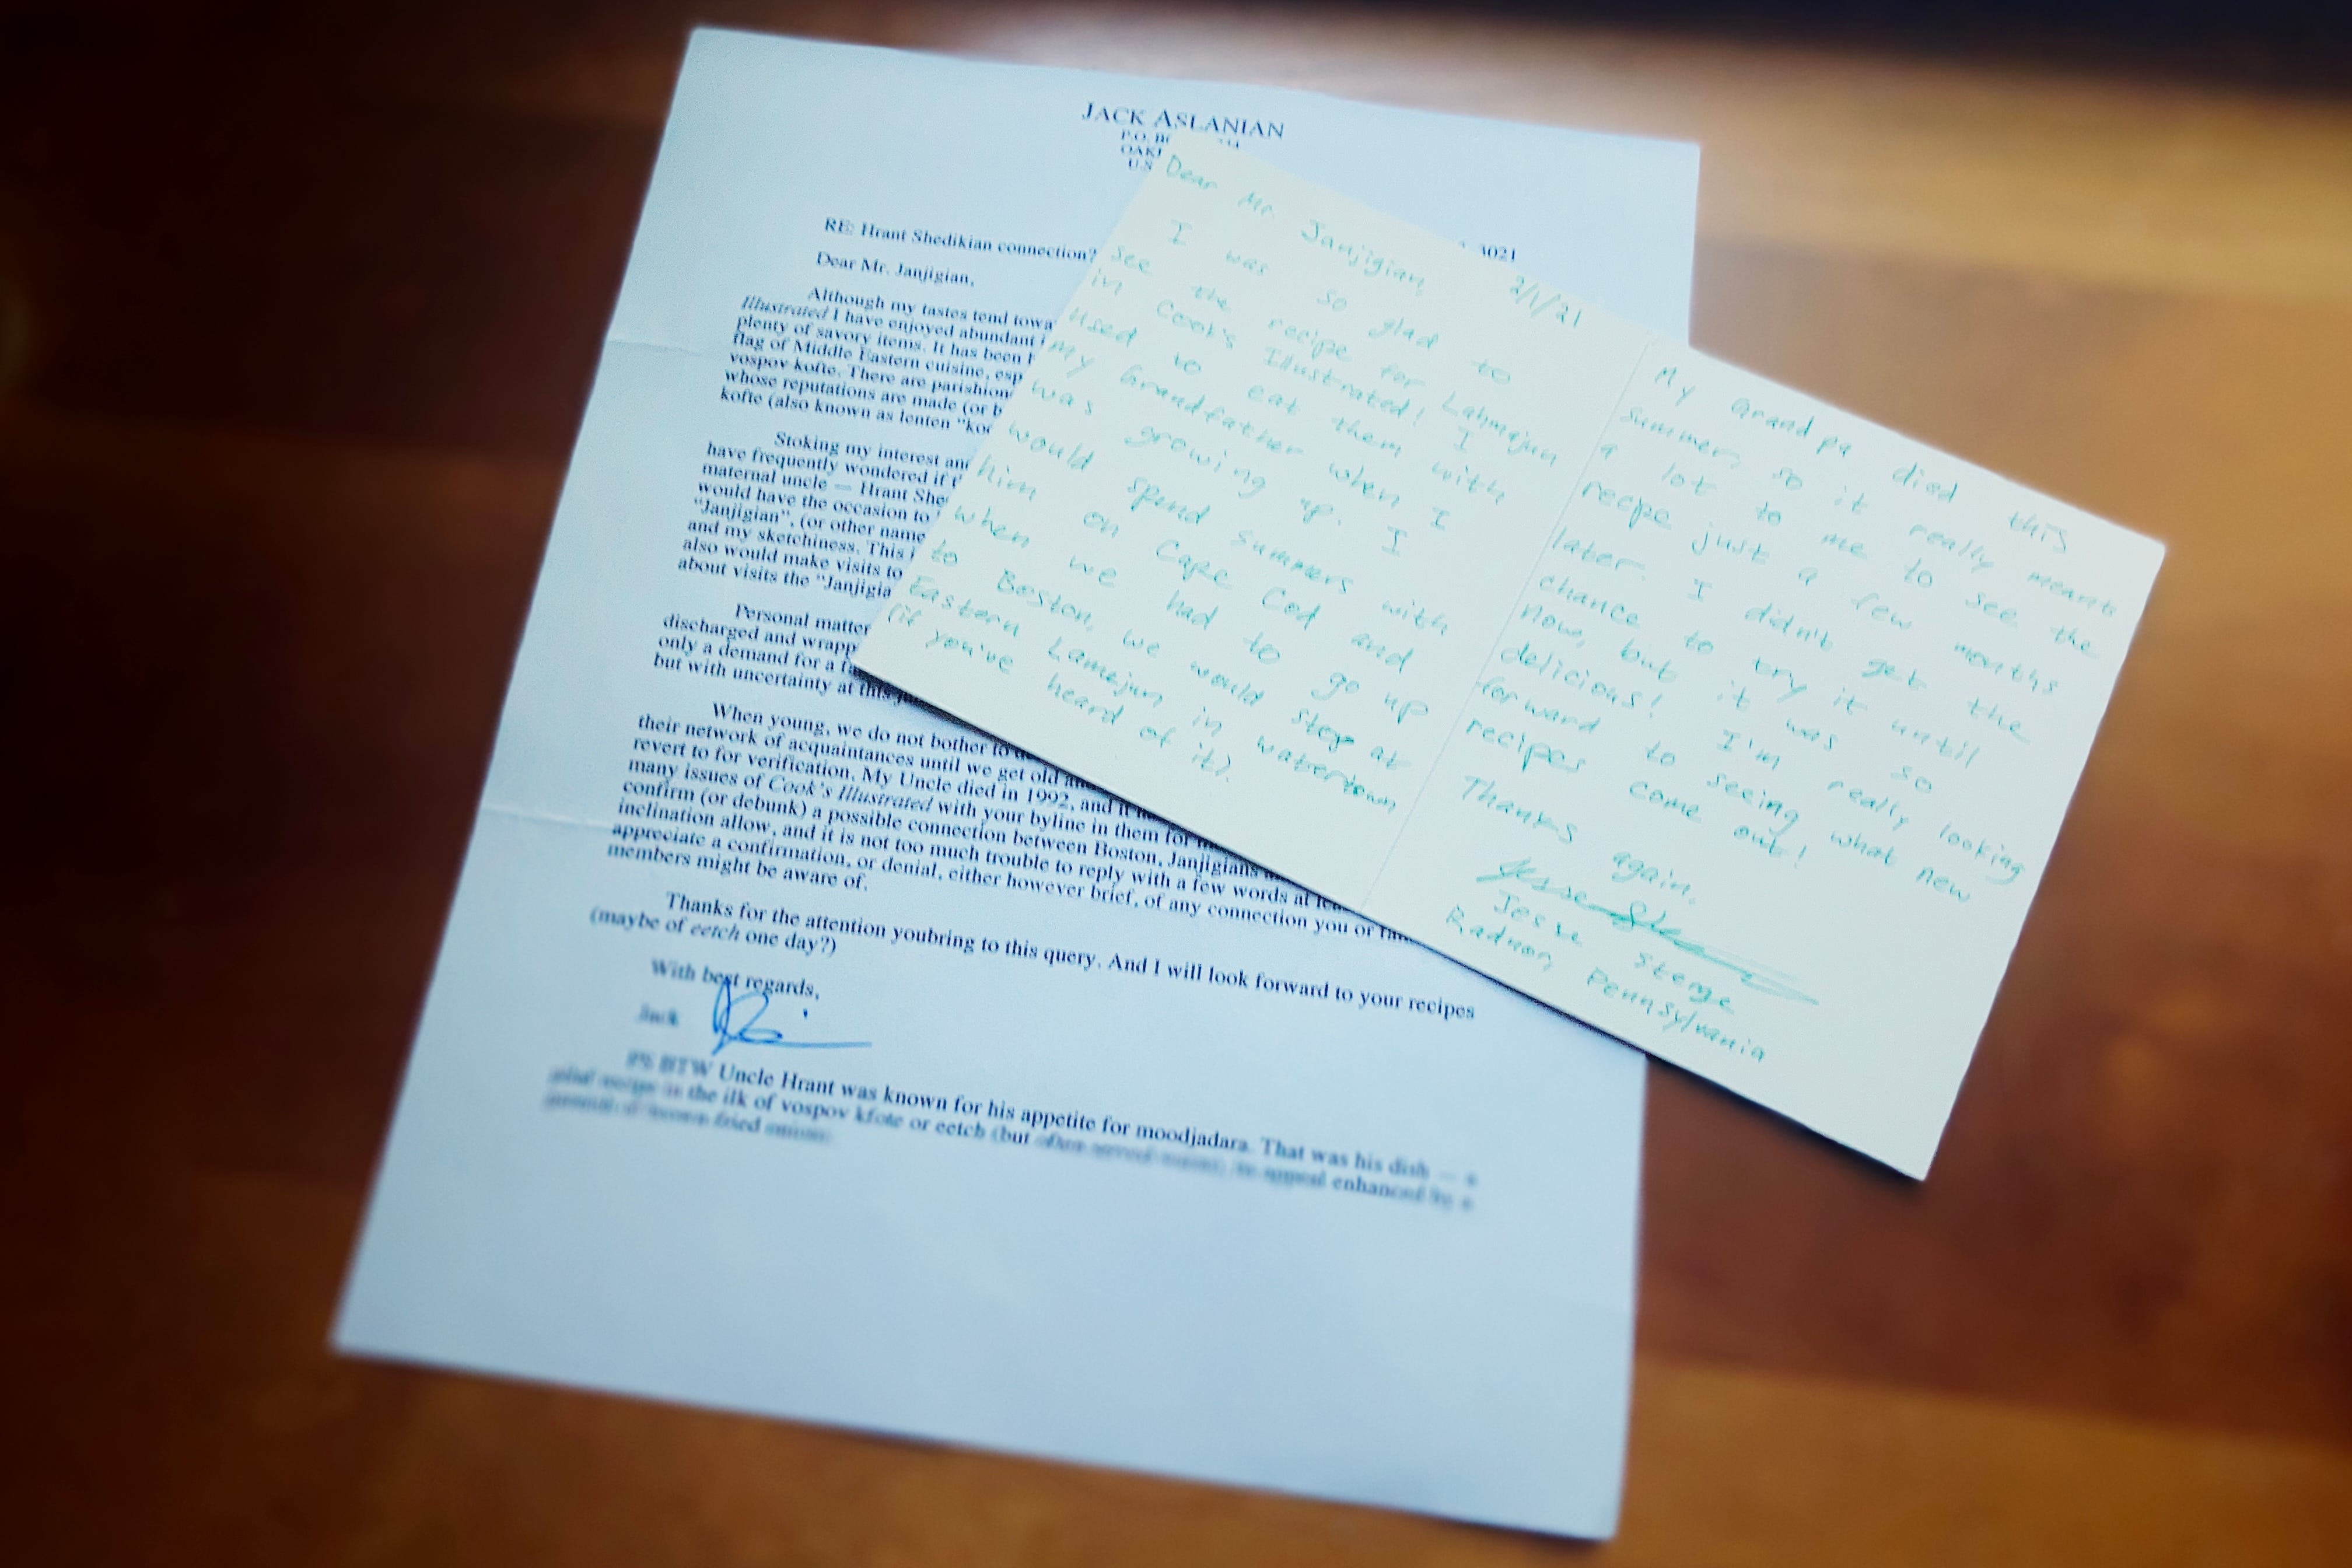 JACK ASLANIAN
P.O.
RE: Hrant Shedikian connection?
Dear Mr. Janjigian,
Although my tastes tend
Illustrated I have enjoyed abundant
plenty of savory items. It has been
flag of Middle Eastern cuisine,
vospov kofte. There are
whose reputations are made (or
kofte (also known as lenten
Stoking my interest
have frequently wondered if
maternal uncle — Hrant
would have the occasion to
"Janjigian", (or other
and my sketchiness. This
also would make visits to
about visits the
Personal
discharged and
only a demand for a
but with uncertainty at this
When young, we do not bother to
their network of acquaintances until we get old
revert to for verification. My Uncle died in 1992, and it
many issues of Cook's Illustrated with your byline in them for
confirm (or debunk) a possible connection between Boston, Janjigians
inclination allow, and it is not too much trouble to reply with a few words at
appreciate a confirmation, or denial, either however brief, of any connection you or
members might be aware of.
Thanks for the attention youbring to this query. And I will look forward to your recipes
(maybe of eetch one day?)
With best regards,
Jack
PS BTW Uncle Hrant was known for his appetite for moodjadara. That was his dish —
in the ilk of vospov kfote or eetch (but often served enhanced by
fried onions.
Dear Mr. Janjigian, 2/1/21
I was so glad to
see the recipe for Lahmajun
in Cook's Illustrated! I
used to eat them with
my Grandfather when I
was growing up. I
would spend summers with
him on Cape Cod and
when we had to go up
to Boston, we would stop at
Eastern Lamajun in watertown
(if you've heard of it).
My Grandpa died this
summer, so it really meant
a lot to me to see the
recipe just a few months
later. I didn't get the
chance to try it until
now, but it was so
delicious! I'm really looking
forward to seeing what new
recipes come out!
Thanks again,
Jesse Sterge
Radnor, Pennsylvania